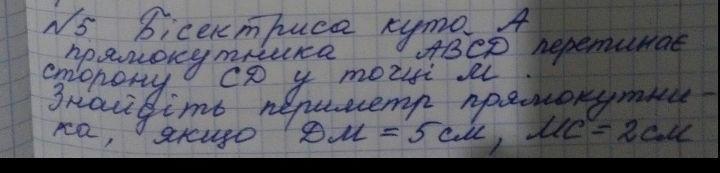 №5 Бісектриса кута А
прямокутника ABCD перетинає
сторону CD у точці М.
Знайдіть периметр прямокутни-
ка, якщо DM = 5 см, MC = 2 см